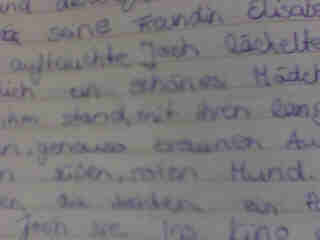 seine Freundin Elisabe
auftauchte. Josh lächelte
ich ein schönes Mädch
ihm stand, mit ihren lang
n, genauso braunen Au
n süßen, roten Mund.
en die beiden ein
Josh sie ins Kino